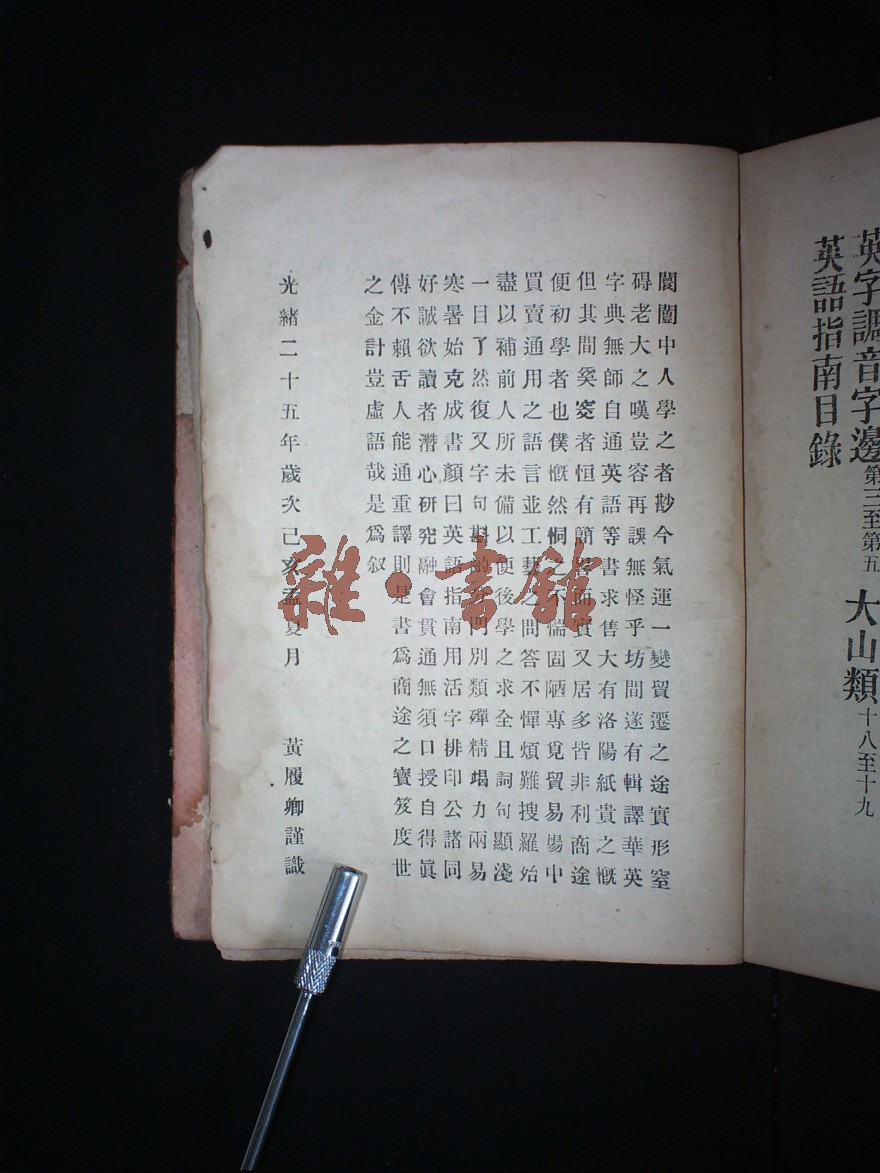 闤闠中人學之者尠今氣運一變貿遷之途實形窒
碍老大之嘆豈容再誤無怪乎坊間遂有輯譯華英
字典無師自通英語等書求售大有洛陽紙貴之慨
但其間奚窔者恒有簡畧而實又居多皆非利商途
便初學者也僕慨然恫之不惴固陋專覓貿易塲中
買賣通用之語言並工藝之問答不憚煩難搜羅始
盡以補前人所未備以便後學之求全且詞句顯淺
一目了然復又字句斟酌分門別類殫精竭力兩易
寒暑始克成書顏曰英語指南用活字排印公諸同
好誠欲讀者潛心研究融會貫通無須口授自得眞
傳不賴舌人能通重譯則是書爲商途之寶笈度世
之金計豈虛語哉是爲叙
光緒二十五年歲次己亥孟夏月 黃履卿謹識
雜·書館
英語指南目錄
英字調音字邊第三至第五 大山類十八至十九